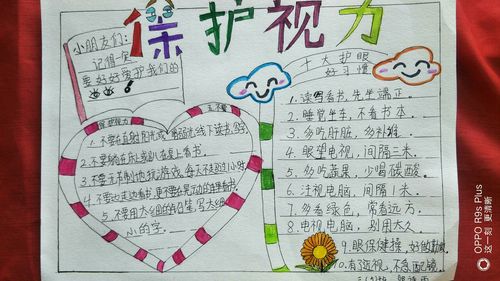 保护视力
小朋友们:
记得一定
要好好爱护我们的
保护视力
五不要
1.不要在直射阳光或
线下读书,写字
2.不要躺在床上或趴在桌上看书.
3.不要无节制地玩游戏,每天不超过1小时
4.不要边走边看书,更不要在晃动的车里看书.
5.不要用太细的自动笔,写太细
小的字.
十大护眼
好习惯
1.读写看书,先坐端正.
2.睡觉坐车,不看书本.
3.多吃肝脏,多补锥.
4.眼望电视,间隔三米.
5.多吃蔬果,少喝碳酸.
6.注视电脑,间隔1米.
7.多看绿色,常看远方.
8.电视电脑,别用太久.
9.眼保健操,好好做
10.有弱视,不急配镜.
OPPO R9s Plus
这一刻 更清晰